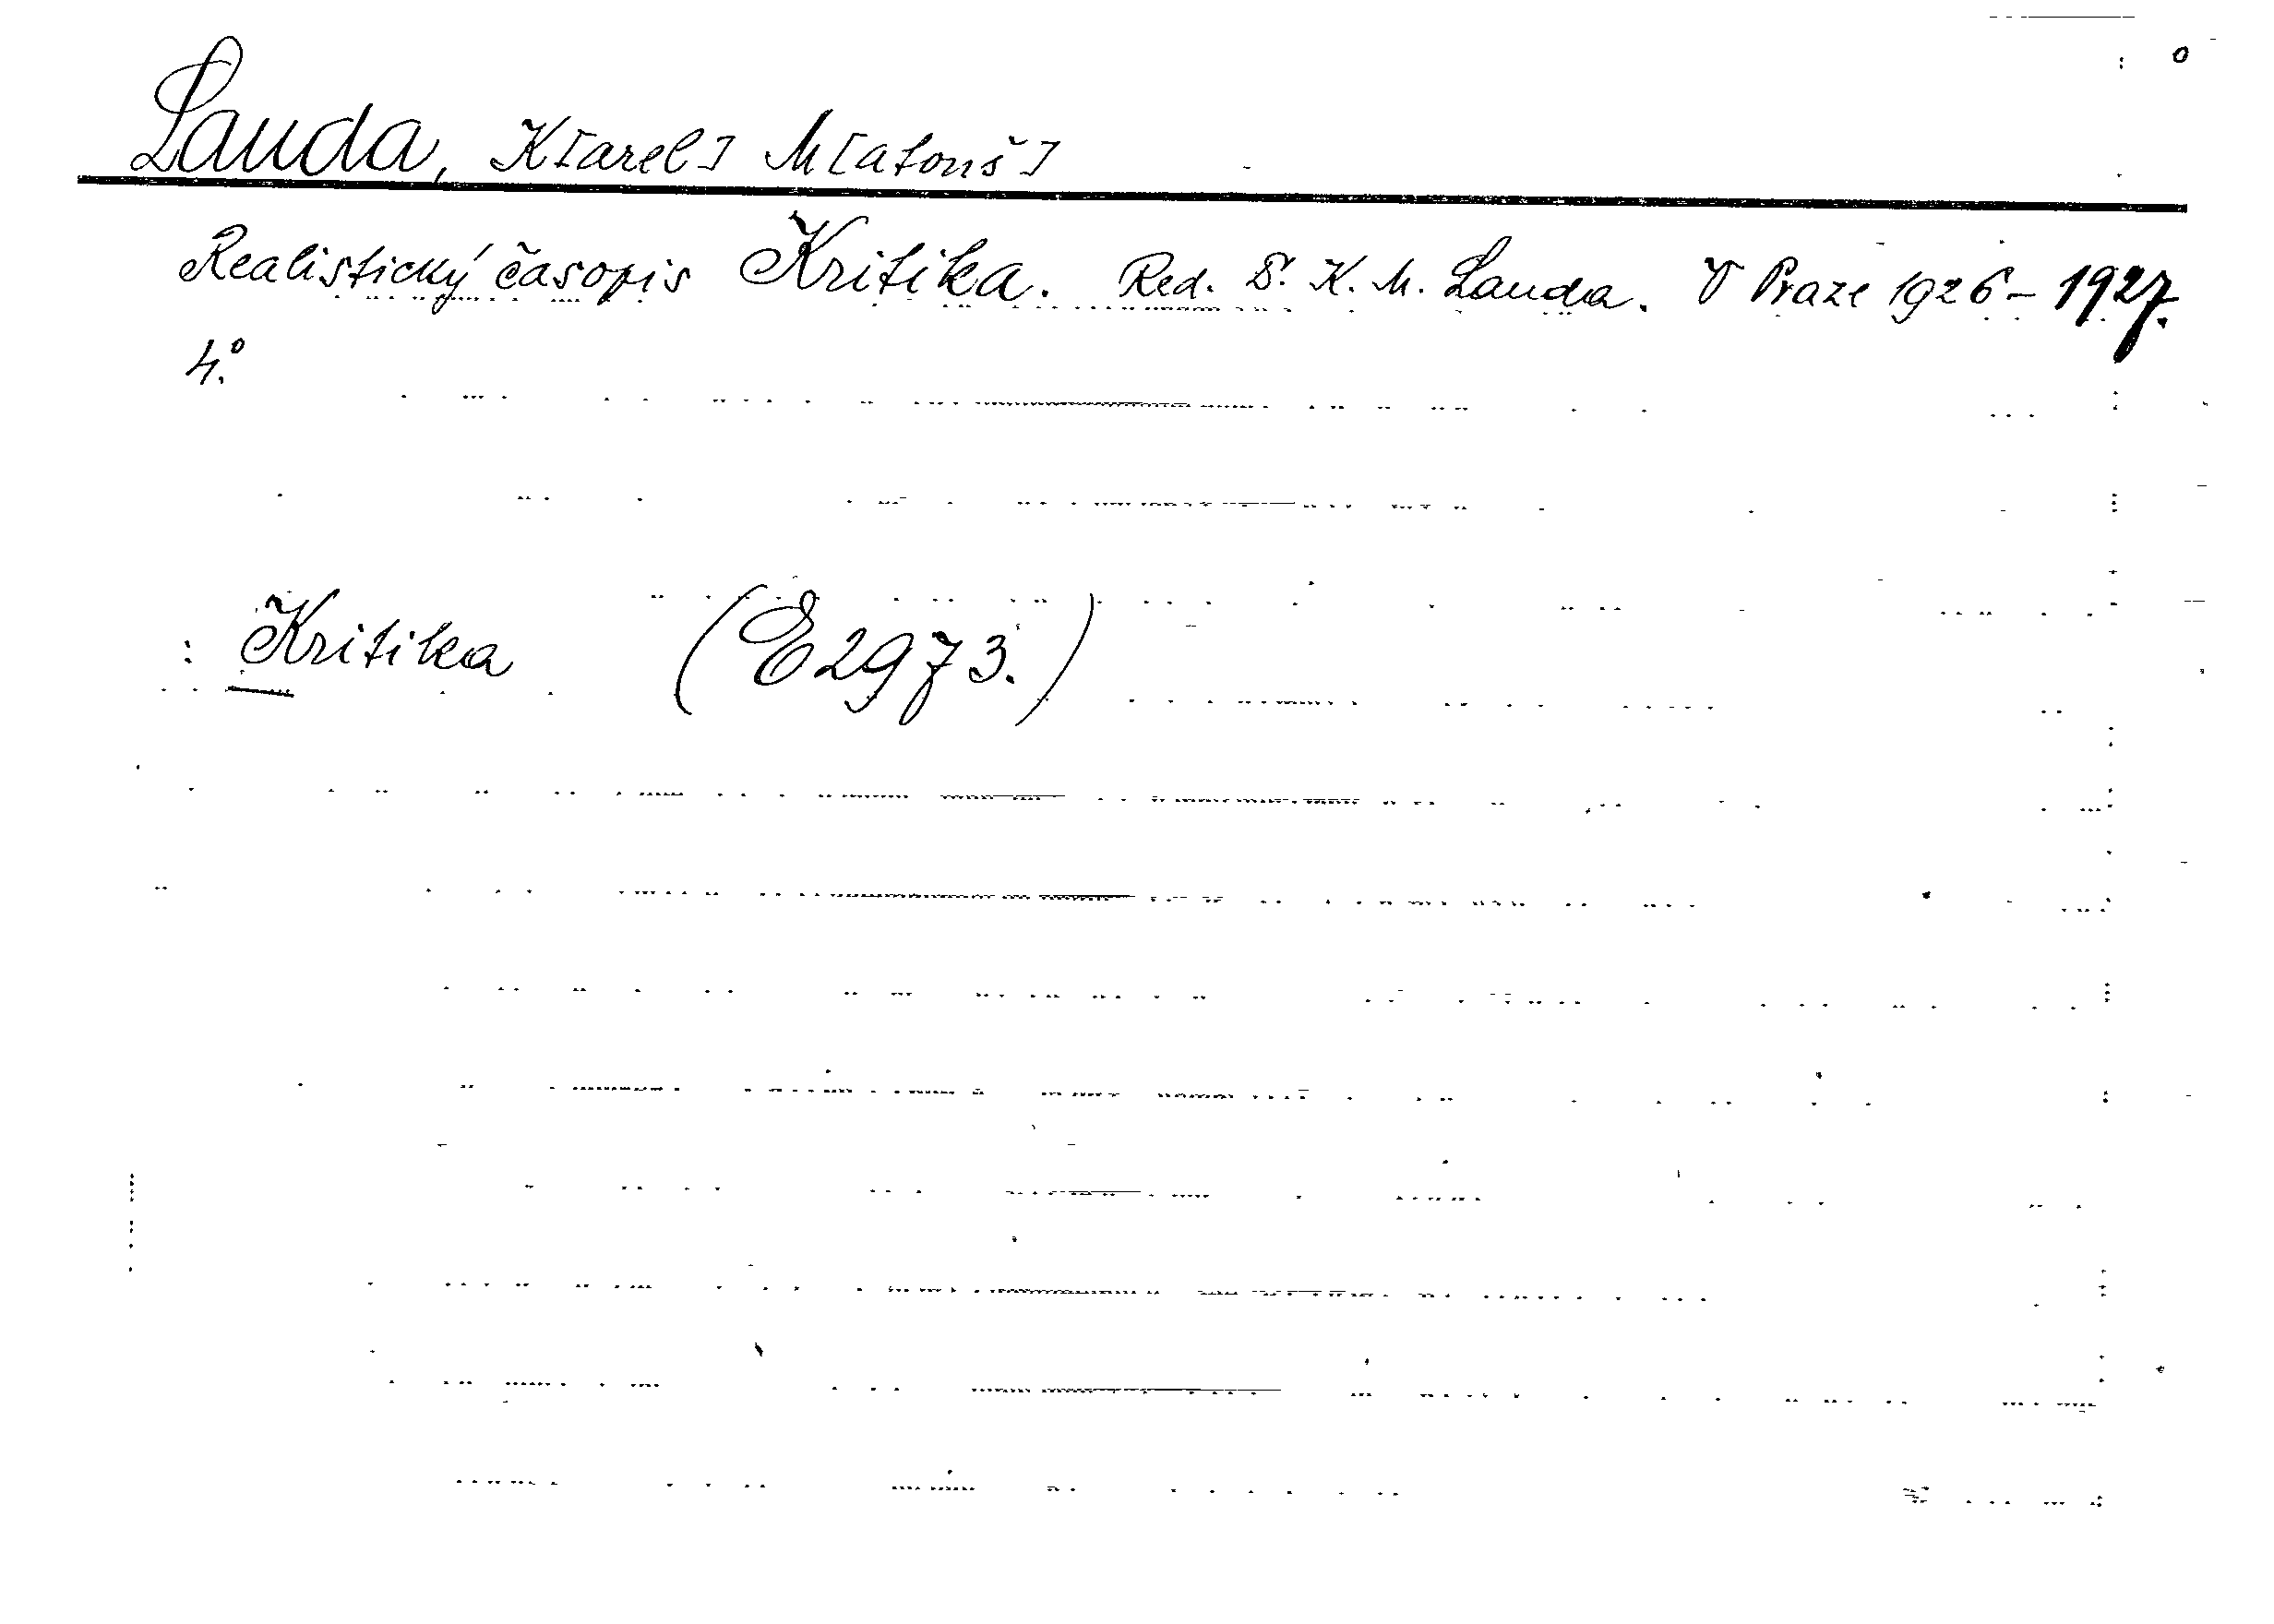 Lauda, K[arel] M[atouš]
Realistický časopis Kritika. Red. Dr. K. M. Lauda. V Praze 1926-1927.
4.°
: Kritika (E2973.)